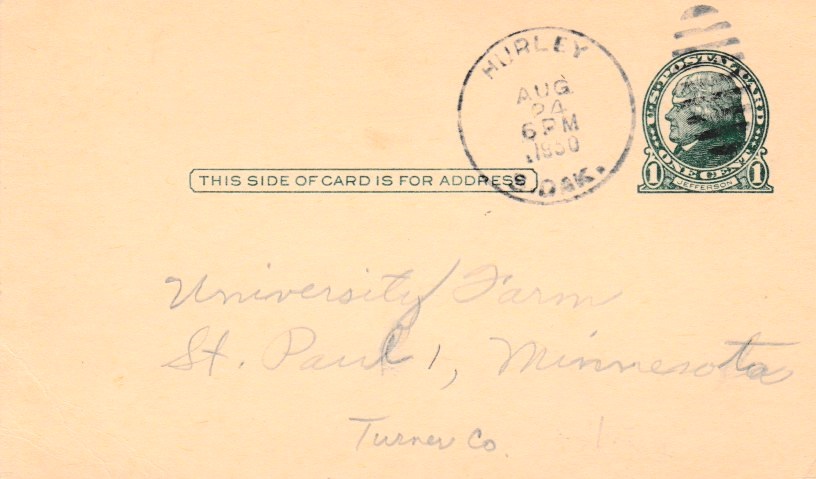 HURLEY
AUG
24
6 PM
1930
S. DAK.
U.S. POSTAL CARD
ONE CENT
1 JEFFERSON 1
THIS SIDE OF CARD IS FOR ADDRESS
University Farm
St. Paul 1, Minnesota
Turner Co.